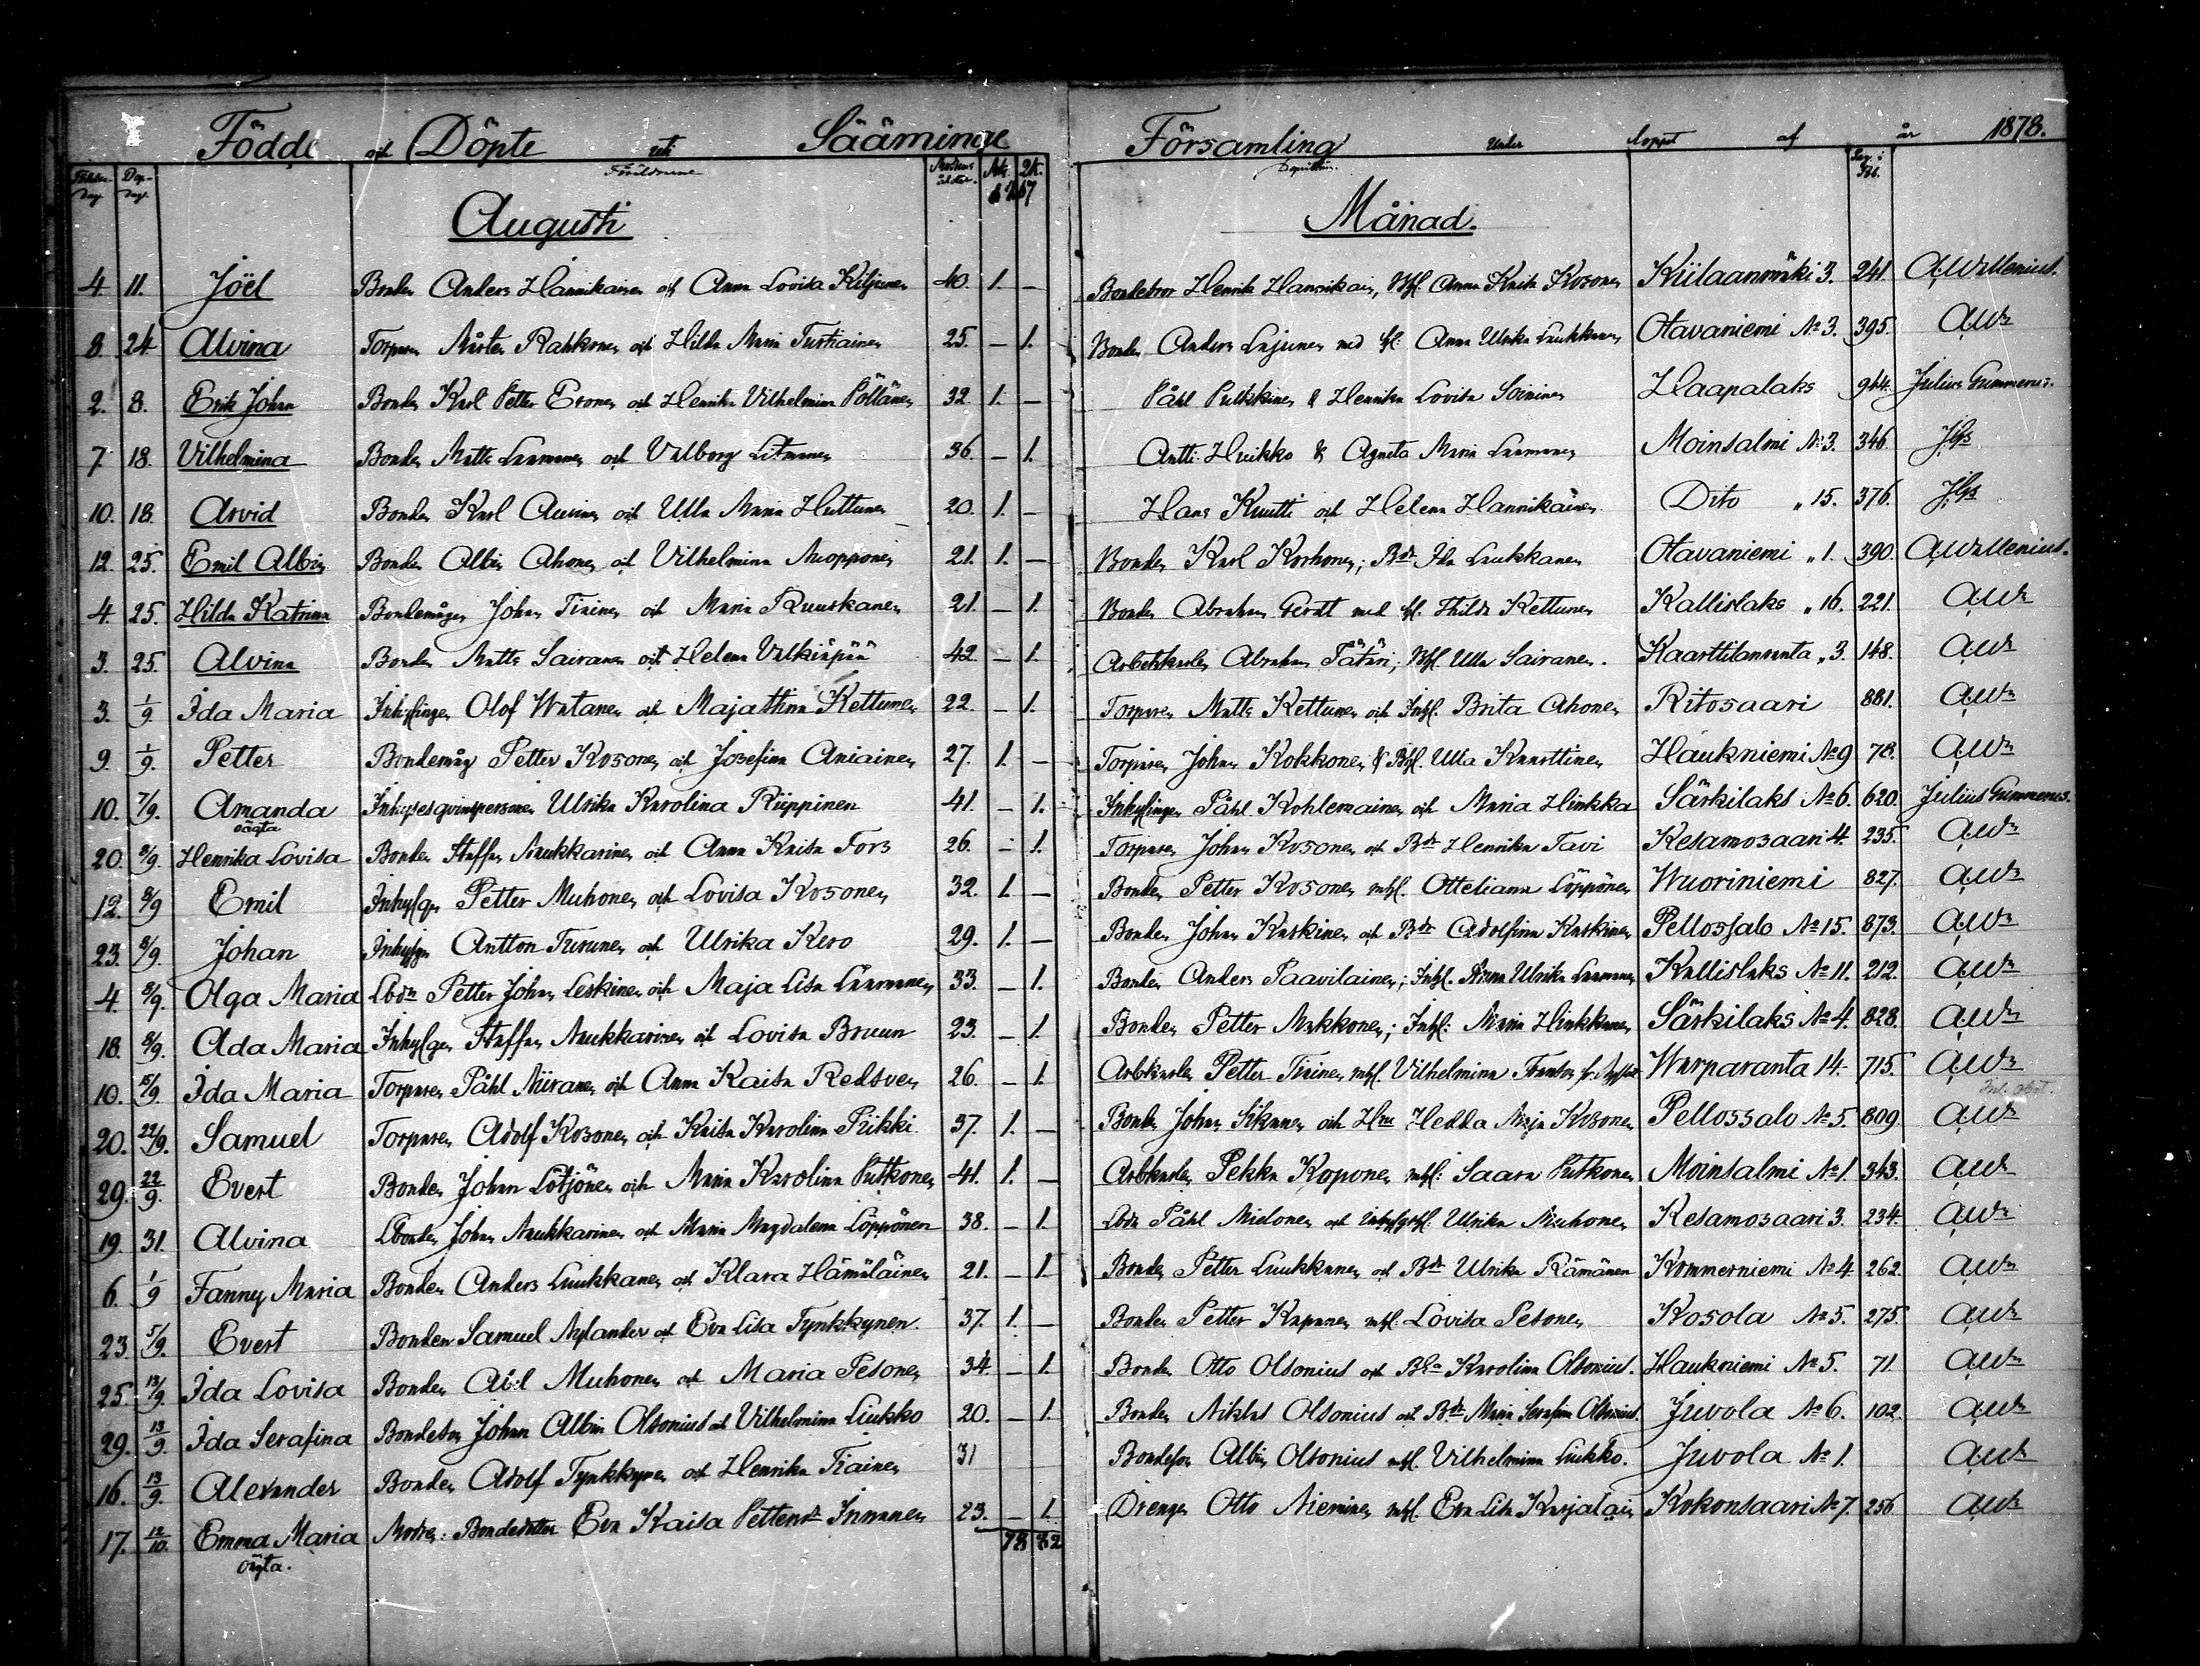 Födde och Döpte uti Sääminge Församling Under loppet af år 1878.
Födelse dag. Dop- dag. Föräldrarne Modrens ålder. Mk. Qk. Pag. i Kb.
Augusti Månad.
4. 11. Joël Bonden Anders Hannikainen och Anna Lovisa Kiljunen 40. 1. — Bondebror Henrik Hannikain, Anna Kaisa Kosonen Kiilaanmäki 3. 241. A.Wallenius.
8. 24. Alvina Torparen Mårten Rahkonen och Hilda Maria Turtiainen 25. — 1. Bonden Anders Lajunen med h: Anna Ulrika Luukkanen Otavaniemi No 3. 395. A.Ws
2. 8. Erik Johan Bonden Karl Petter Eronen och Henrika Vilhelmina Pöllänen 32. 1. — Påhl Pulkkinen & Henrika Lovisa Soininen Haapalaks 964. Julius Gummerus.
7 18. Vilhelmina Bonden Matts Laamanen och Valborg Litmanen 36. — 1. Antti Huikko & Agneta Maria Laamanen Moinsalmi No 3. 346. JGs
10. 18. Arvid Bonden Karl Auvinen och Ulla Maria Huttunen 20. 1. — Hans Knutti och Helena Hannikainen Dito " 15. 376. JGs
12. 25. Emil Albin Bonden Albin Ahonen och Vilhelmina Muopponen 21. 1. — Bonden Karl Korhonen; Bdr Ida Laukkanen Otavaniemi " 1. 390. A.Wallenius.
4. 25. Hilda Katrina Bondemågen Johan Tiainen och Maria Ruuskanen 21. — 1. Bonden Abraham Geratt med h. Thilda Kettunen Kallislaks " 16. 221. A.Ws
3. 25. Alvina Bonden Matts Sairanen och Helena Valkiapää 42. — 1. Arbetskarlen Abraham Tätäri; Ulla Sairanen. Kaarttilanranta " 3. 148. A.Ws
3. 1/9. Ida Maria Inhysingen Olof Watanen och Maja Stina Kettunen 22. — 1. Torparen Matts Kettunen och Inh. Brita Ahonen Ritosaari 881. A.Ws
9. 1/9. Petter Bondemåg Petter Kosonen och Josefina Aniainen 27. 1. — Torparen Johan Kokkonen & Ulla Kaarttinen Haukniemi No 9 78. A.Ws
10. 7/9. Amanda Inhysesqvinspersonen Ulrika Karolina Riippinen 41. — 1. Inhysingen Påhl Kohlemainen och Maria Hinkka Särkilaks No 6. 620. Julius Gummerus.
oägta
20. 8/9. Henrika Lovisa Bonden Staffan Naukkarinen och Anna Kaisa Fors 26. — 1. Torparen Johan Kosonen och Bdr Henrika Tavi Kesamosaari 4. 235. A.Ws
12. 8/9 Emil Inhysgn Petter Muhonen och Lovisa Kosonen 32. 1. — Bonden Petter Kosonen mh. Otteliana Löppönen Wuoriniemi 827. A.Ws
23. 8/9. Johan Inhysgn Antton Turunen och Ulrika Kero 29. 1. — Bonden Johan Kaskinen och Bdr Adolfina Kaskinen Pellossalo No 15. 873. A.Ws
4. 8/9. Olga Maria Lbdn Petter Johan Leskinen och Maja Lisa Laamanen 33. — 1. Bonden Anders Paavilainen; Inh. Anna Ulrika Laamanen Kallislaks No 11. 212. A.Ws
18. 8/9. Ada Maria Inhysgn Staffan Naukkarinen och Lovisa Bruun 23. — 1. Bonden Petter Makkonen; Inh: Maria Hinkkanen Särkilaks No 4. 828. A.Ws
10. 15/9. Ida Maria Torparen Påhl Niiranen och Anna Kaisa Redsven 26. — 1. Arbkarlen Petter Tiainen mh. Vilhelmina Warparanta 14. 715. A.Ws
20. 22/9. Samuel Torparen Adolf Kosonen och Kaisa Karolina Pikki. 37. 1. — Bonden Johan Sikanen och Hedda Maja Kosonen Pellossalo No 5. 809. A.Ws
29. 22/9. Evert Bonden Johan Lötjönen och Maria Karolina Putkonen 41. 1. — Arbkarlen Pekka Kaponen mh: Saara Putkonen Moinsalmi No 1. 343. A.Ws
19. 31. Alvina Lbonden Johan Naukkarinen och Maria Magdalena Löppönen 38. — 1. Lbdn Påhl Mielonen och Ulrika Muhonen Kesamosaari 3. 234. A.Ws
6. 1/9 Fanny Maria Bonden Anders Luukkanen och Klara Hämäläinen 21. — 1. Bonden Petter Luukkanen och Bdr Ulrika Rämänen Kommerniemi No 4. 262. A.Ws
23. 5/9. Evert Bonden Samuel Nylander och Eva Lisa Tynkkynen. 37. 1. — Bonden Petter Kaparen mh. Lovisa Pesonen Kosola No 5. 275. A.Ws
25. 13/9. Ida Lovisa Bonden Abel Muhonen och Maria Pesonen 34. — 1. Bonden Otto Olsonius och Karolina Olsonius. Haukniemi No 5. 71. A.Ws
29. 13/9. Ida Serafina Bondeson Johan Albin Olsonius och Vilhelmina Liukko 20. — 1. Bonden Niklas Olsonius och Bdr Maria Serafina Olsonius. Juvola No 6. 102. A.Ws
16. 13/9. Alexander Bonden Adolf Tynkkynen och Henrika Tiainen 31 Bondeson Albin Olsonius mh. Vilhelmina Liukko. Juvola No 1. A.Ws
17. 12/10. Emma Maria Modren: Bondedotter Eva Kaisa Pettersdr Immonen 23. — 1. Drengen Otto Nieminen mh. Eva Lisa Karjalain Kokonsaari No 7. 256. A.Ws
oägta. 78 82